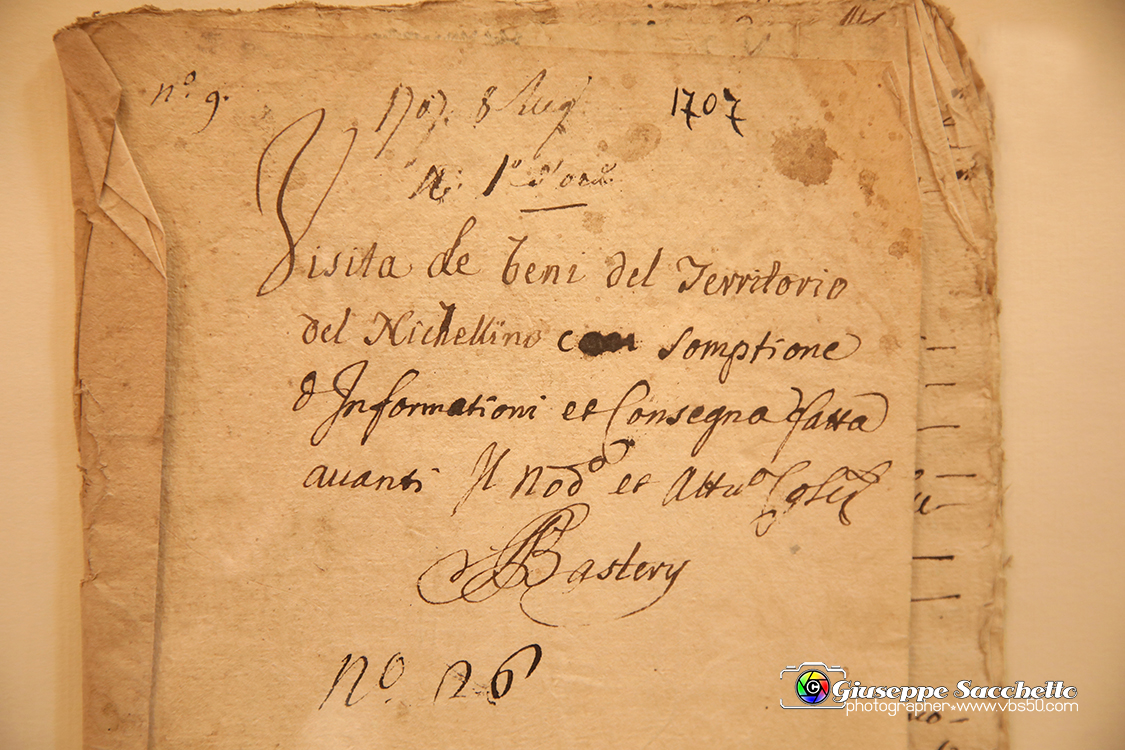 n.º 9.
1707. 8
1707
1º
Visita de beni del Territorio
del Nichellino con Somptione
d Informationi et Consegna fatta
auanti Il Nodº et Attuº
Bastery
Nº 26
Giuseppe Sacchetto
photographer•www.vbs50.com